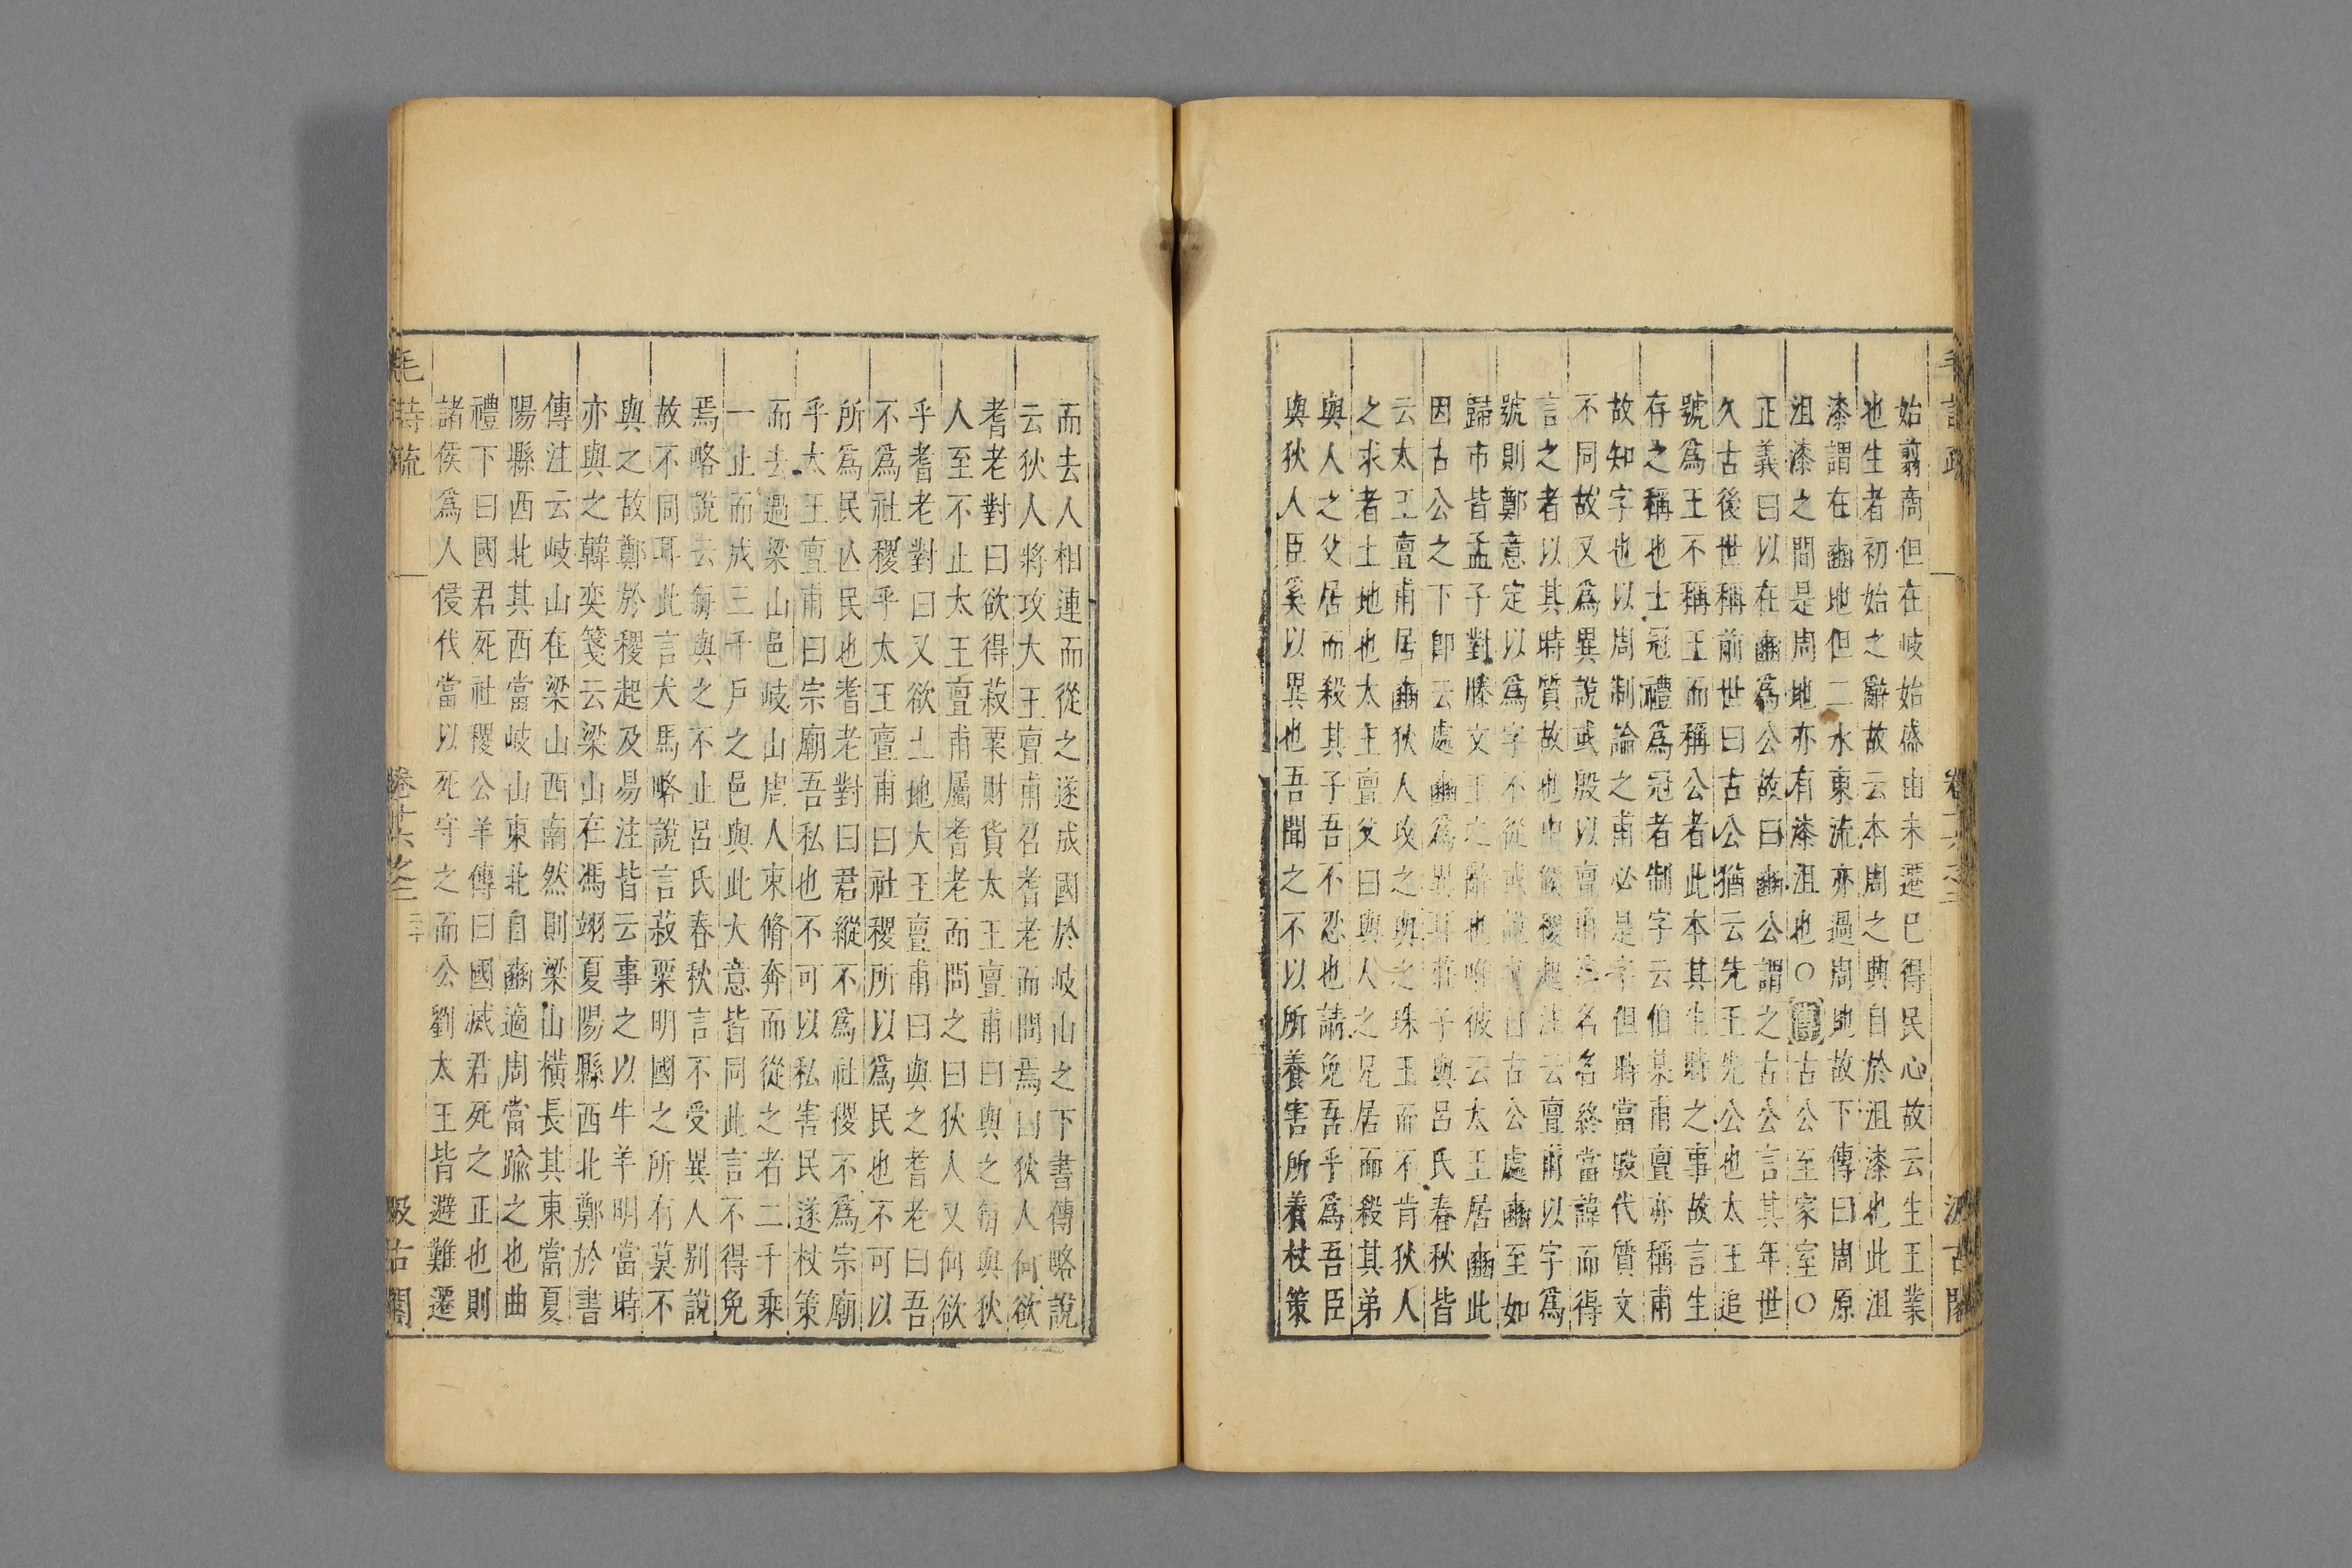 始翦商但在岐始盛由未遷已得民心故云生王業
也生者初始之辭故云本周之典自於沮漆也此沮
漆謂在豳地但二水東流亦過周地故下傳曰周原
沮漆之間是周地亦有漆沮也○古公至家室○
正義曰以在豳爲公故曰豳公謂之古公言其年世
久古後世稱前世曰古公猶云先王先公也太王追
號爲王不稱王而稱公者此本其生時之事故言生
存之稱也士冠禮爲冠者制字云伯某甫亶亦稱甫
故知字也以周制論之甫必是字但時當殷代質文
不同故又爲異說或殷以亶甫爲名名終當諱而得
言之者以其時質故也中候稷起注云亶甫以字爲
號則鄭意定以爲字不從或說也古公處豳至如
歸市皆孟子對滕文王之辭也唯彼云太王居豳此
因古公之下卽云處豳爲異耳莊子與呂氏春秋皆
云太王亶甫居豳狄人攻之與之珠玉而不肯狄人
之求者土地也太王亶父曰與人之兄居而殺其弟
與人之父居而殺其子吾不忍也請免吾乎爲吾臣
與狄人臣奚以異也吾聞之不以所養害所養杖策
毛詩疏
卷十六之二
汲古閣
而去人相連而從之遂成國於岐山之下書傳略說
云狄人將攻大王亶甫召耆老而問焉曰狄人何欲
耆老對曰欲得菽粟財貨太王亶甫曰與之每與狄
人至不止太王亶甫屬耆老而問之曰狄人又何欲
乎耆老對曰又欲土地大王亶甫曰與之耆老曰吾
不爲社稷乎太王亶甫曰社稷所以爲民也不可以
所爲民亾民也耆老對曰君縱不爲社稷不爲宗廟
乎太王亶甫曰宗廟吾私也不可以私害民遂杖策
而去過梁山邑岐山周人束脩奔而從之者二千乘
一止而成三千戶之邑與此大意皆同此言不得免
焉略說云每與之不止呂氏春秋言不受異人別說
故不同耳此言犬馬略說言菽粟明國之所有莫不
與之故鄭於稷起及易注皆云事之以牛羊明當時
亦與之韓奕箋云梁山在馮翊夏陽縣西北鄭於書
傳注云岐山在梁山西南然則梁山橫長其東當夏
陽縣西北其西當岐山東北自豳適周當踰之也曲
禮下曰國君死社稷公羊傳曰國滅君死之正也則
諸侯爲人侵伐當以死守之而公劉太王皆避難遷
毛詩疏
卷十六之二
汲古閣